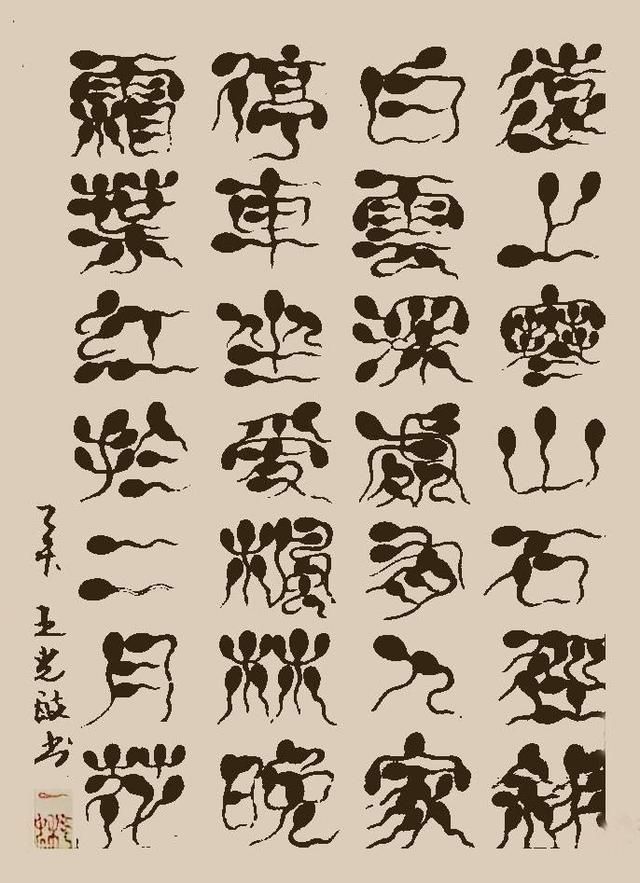 遠上寒山石徑斜
白雲深處人家
停車坐愛楓林晚
霜葉紅於二月花
未 王光书